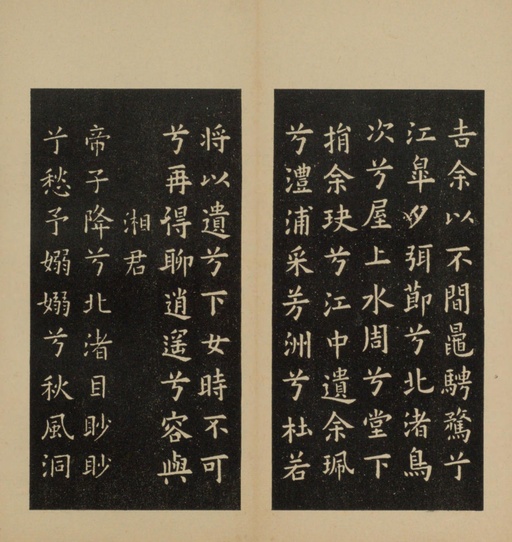 告余以不閒鼂騁騖兮
江皐夕弭節兮北渚鳥
次兮屋上水周兮堂下
捐余玦兮江中遺余珮
兮澧浦采芳洲兮杜若
将以遺兮下女時不可
兮再得聊逍遥兮容與
湘君
帝子降兮北渚目眇眇
兮愁予嫋嫋兮秋風洞